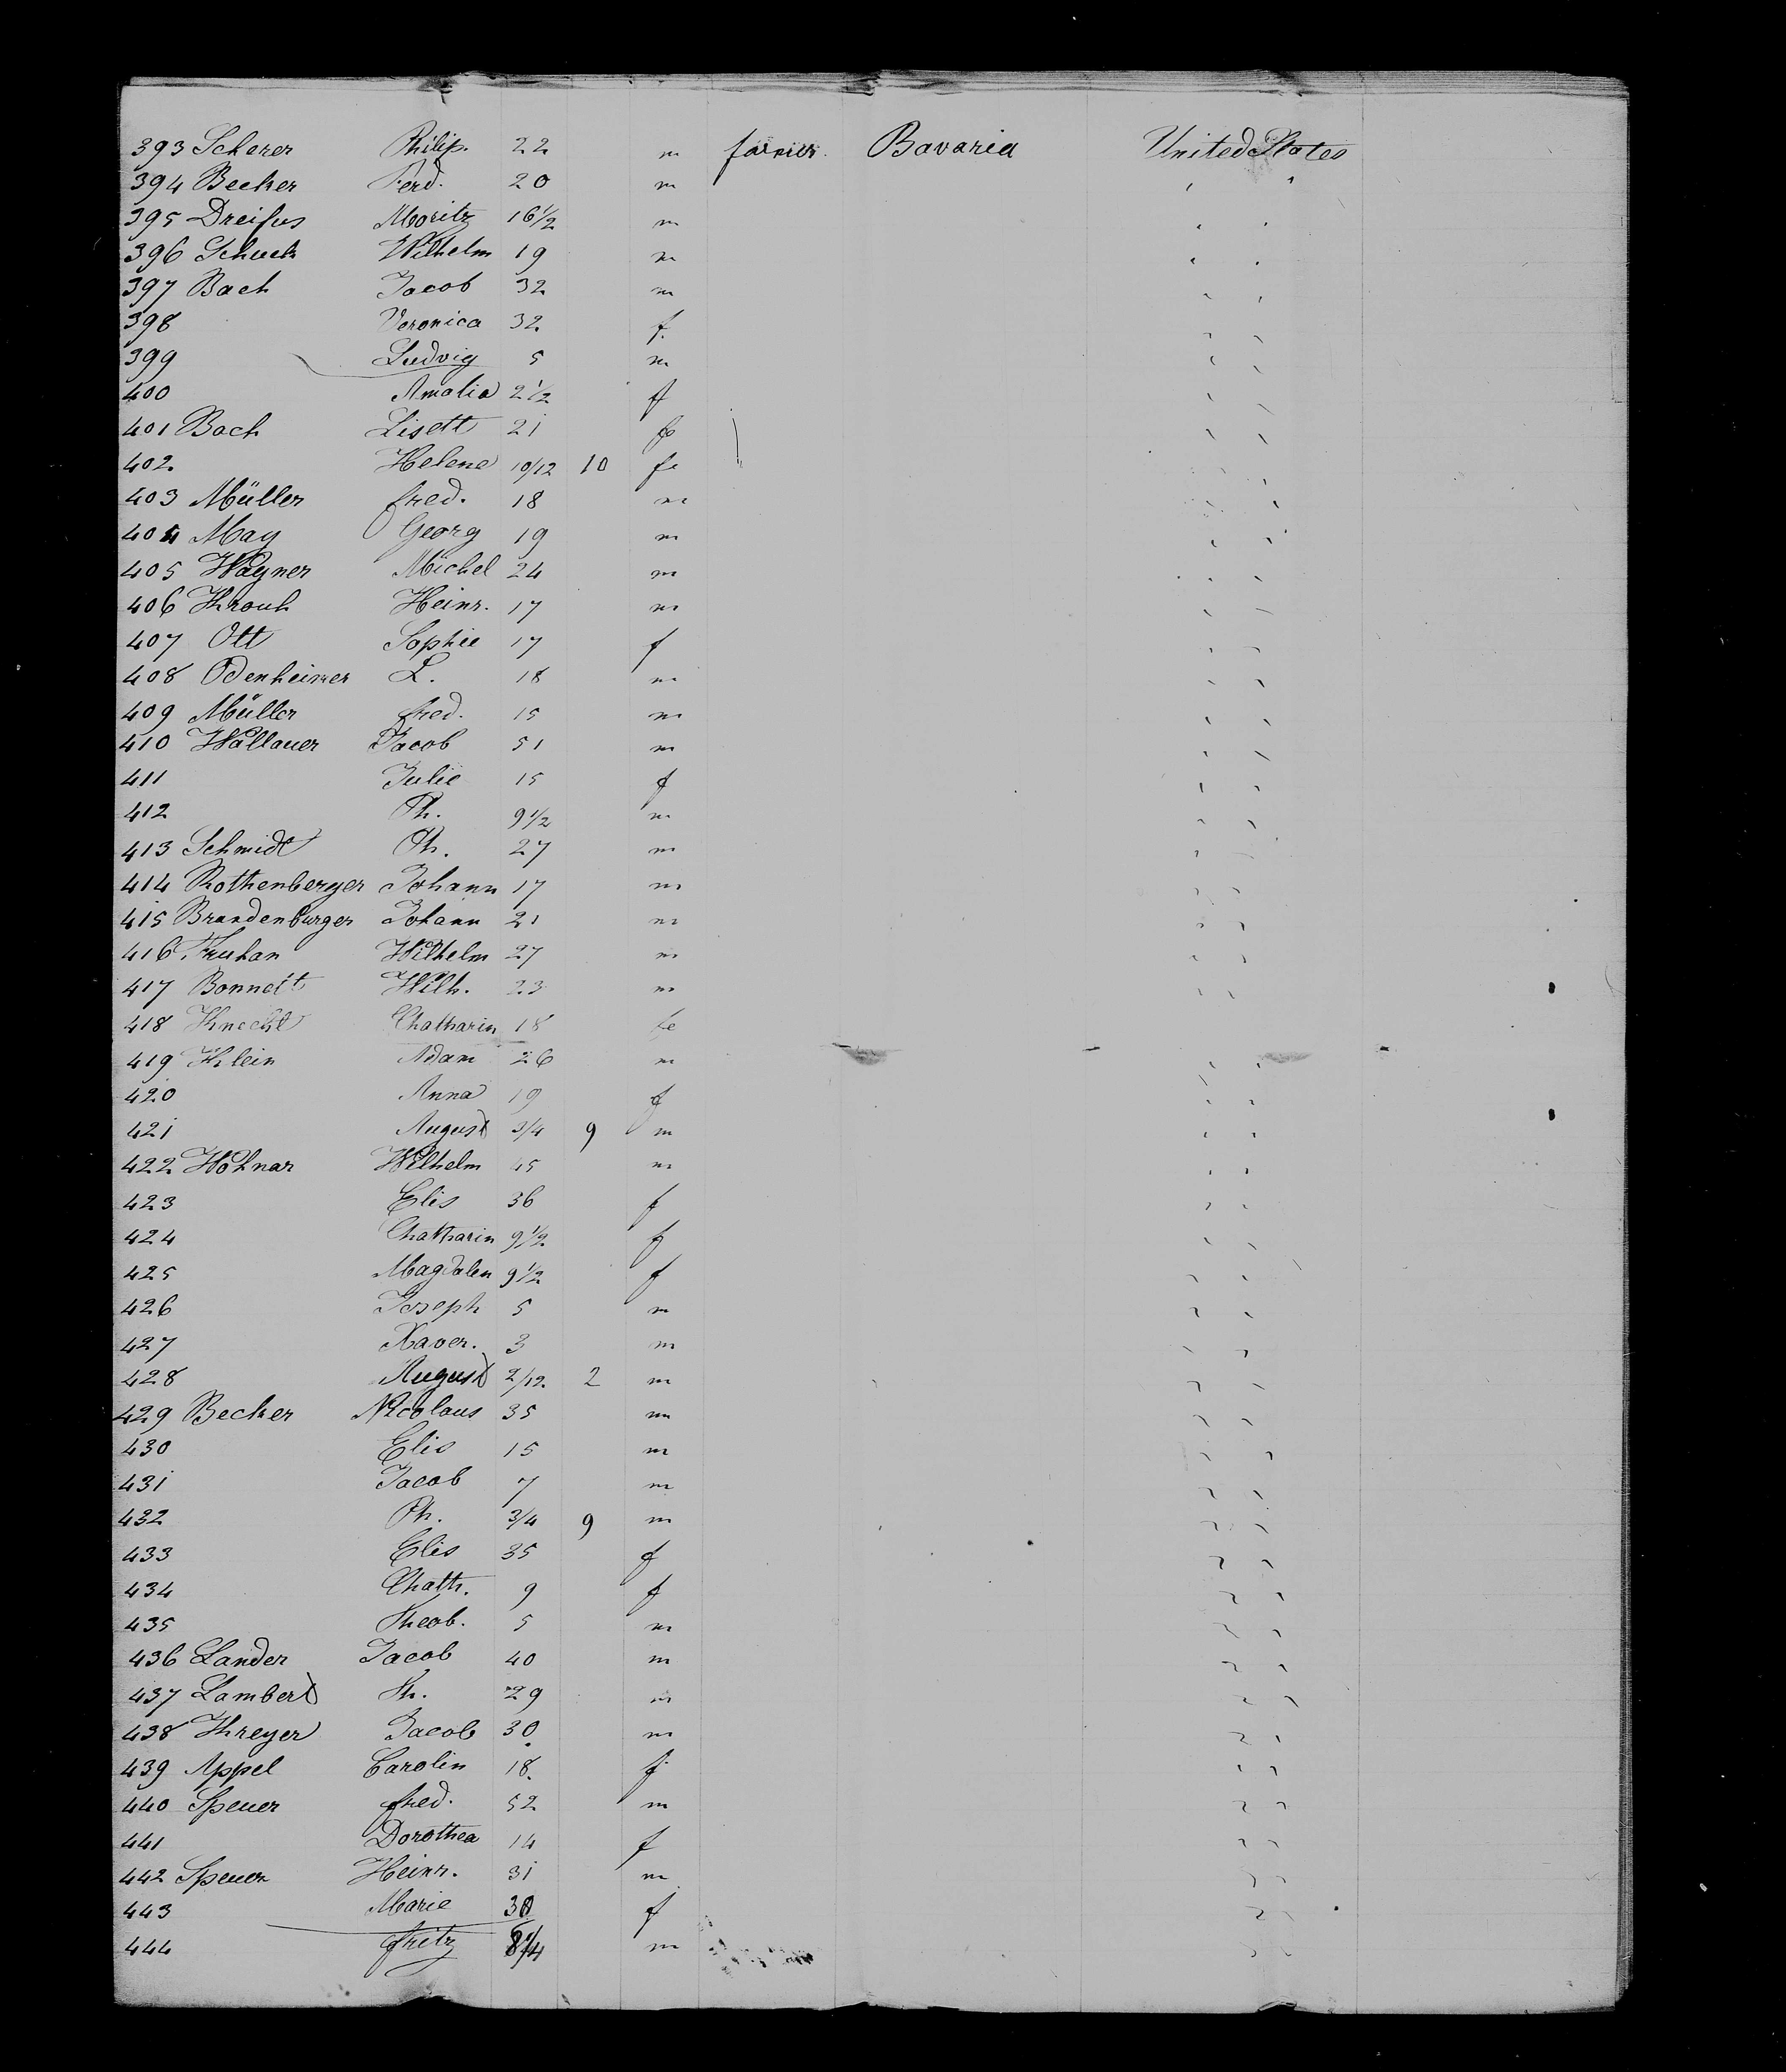 393 Scherer Philip. 22 m farmer. Bavaria United States
394 Becker Ferd. 20 m " "
395 Dreifus Moritz 16 1/2 m " "
396 Schuck Wilhelm 19 m " "
397 Bach Jacob 32 m " "
398 Veronica 32 f. " "
399 Ludvig 5 m " "
400 Amalia 2 1/2 f " "
401 Bach Lisett 21 fe " "
402. Helene 10/12 10 fe " "
403 Müller fred. 18 m " "
404 May Georg 19 m " "
405 Wagner Michel 24 m " "
406 Krouh Heinr. 17 m " "
407 Ott Sophie 17 f " "
408 Odenheimer L. 18 m " "
409 Müller fred. 15 m " "
410 Wallauer Jacob 51 m " "
411 Julie 15 f " "
412 Ph. 9 1/2 m " "
413 Schmidt Ph. 27 m " "
414 Rothenberger Johann 17 m " "
415 Brandenburger Johann 21 m " "
416 Wilhelm 27 m " "
417 Bonnett Wilh. 23 m " "
418 Knecht Chatharin 18 fe
419 Klein Adam 26 m " "
420 Anna 19 f " "
421 August 3/4 9 m " "
422 Hohnar Wilhelm 45 m " "
423 Elis 36 f " "
424 Chatharin 9 1/2 f " "
425 Magdalen 9 1/2 f " "
426 Joseph 5 m " "
427 Xaver. 3 m " "
428 August 2/12. 2 m " "
429 Becker Nicolaus 35 m " "
430 Elis 15 m " "
431 Jacob 7 m " "
432 Ph. 3/4 9 m " "
433 Elis 35 f " "
434 Chath. 9 f " "
435 Theob. 5 m " "
436 Lander Jacob 40 m " "
437 Lambert 29 m " "
438 Kreyer Jacob 30 m " "
439 Appel Carolin 18. f " "
440 Speuer fred. 52 m " "
441 Dorothea 14 f " "
442 Speuer Heinr. 31 m " "
443 Marie 30 f " "
444 fritz m " "